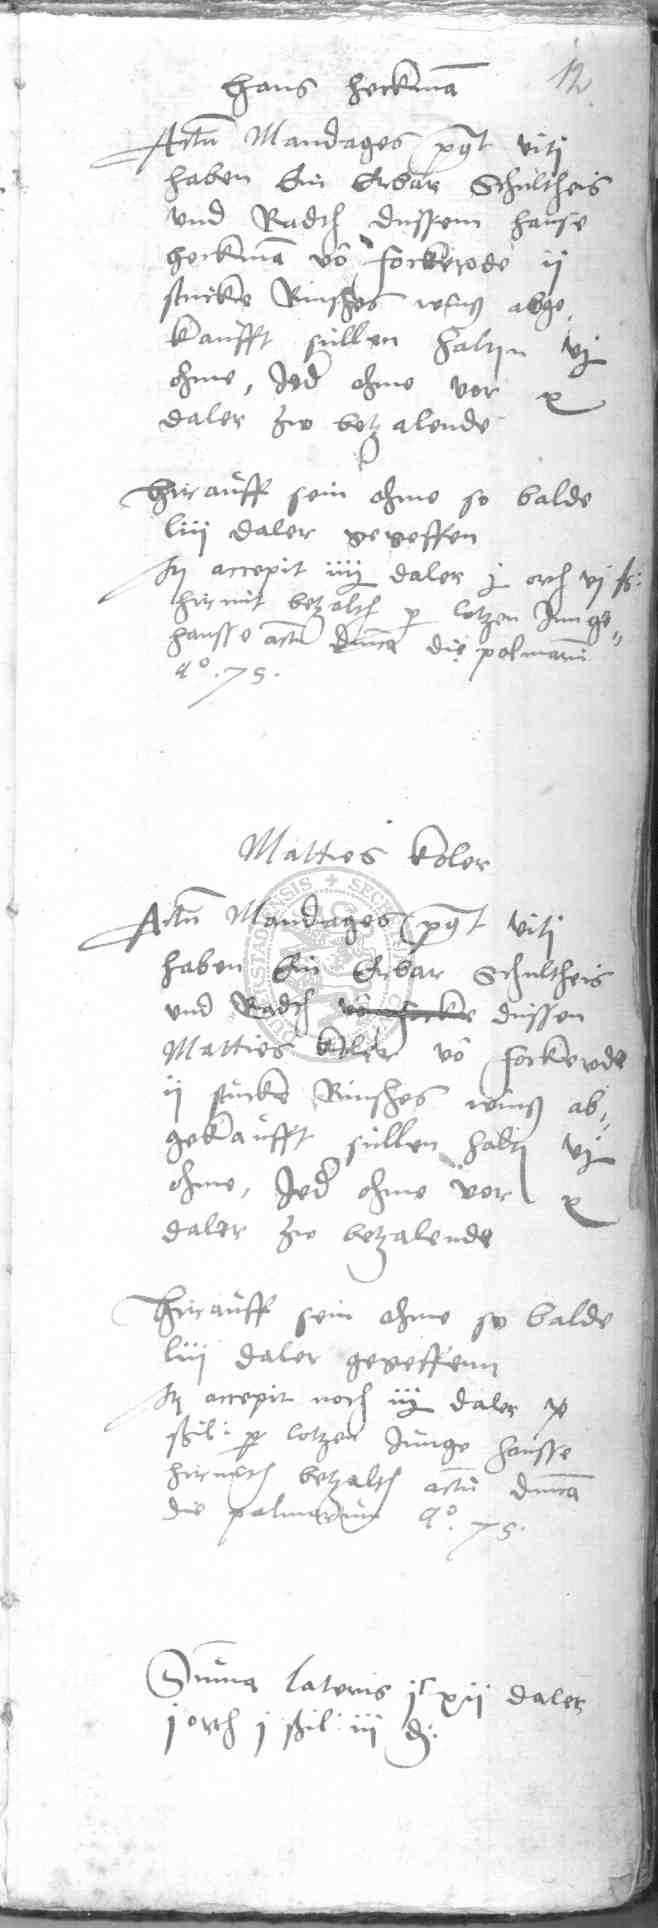 12
Hans Heckmā
Actū Mandages pꝰt viti
haben Ein Erbar Schultheis
und Radth dussem Hanse
Heckmā vō Fockerode ij
stucke Rinsches weins abge,
kaufft sullen halten vj
ohme, Jed ohme vor x
daler zw betzalende
Hirauff sein ohme so balde
liij daler gegeffen
accepit iiij daler j orth vj ß:
hirmit betzalth p Lotzen Junge
Hansse actū dnica die palmarū
aº. 75.
Matties Koler
Actū Mandages pꝰt viti
haben Ein Erbar Schultheis
und Radth dussen
Matties Koler vō Fockerode
ij stucke Rinsches weins ab,
gekaufft sullen halt vj
ohme, Jed ohme vor x
daler zw betzalende
Hirauff sein ohme so balde
liij daler gegeffenn
accepit noch iij daler
ßil: p Lotzen Junge Hansse
betzalth actū dnica
die palmarum aº. 75.
Suma lateris jᶜ xij daler
j orth j ßil: iij d: